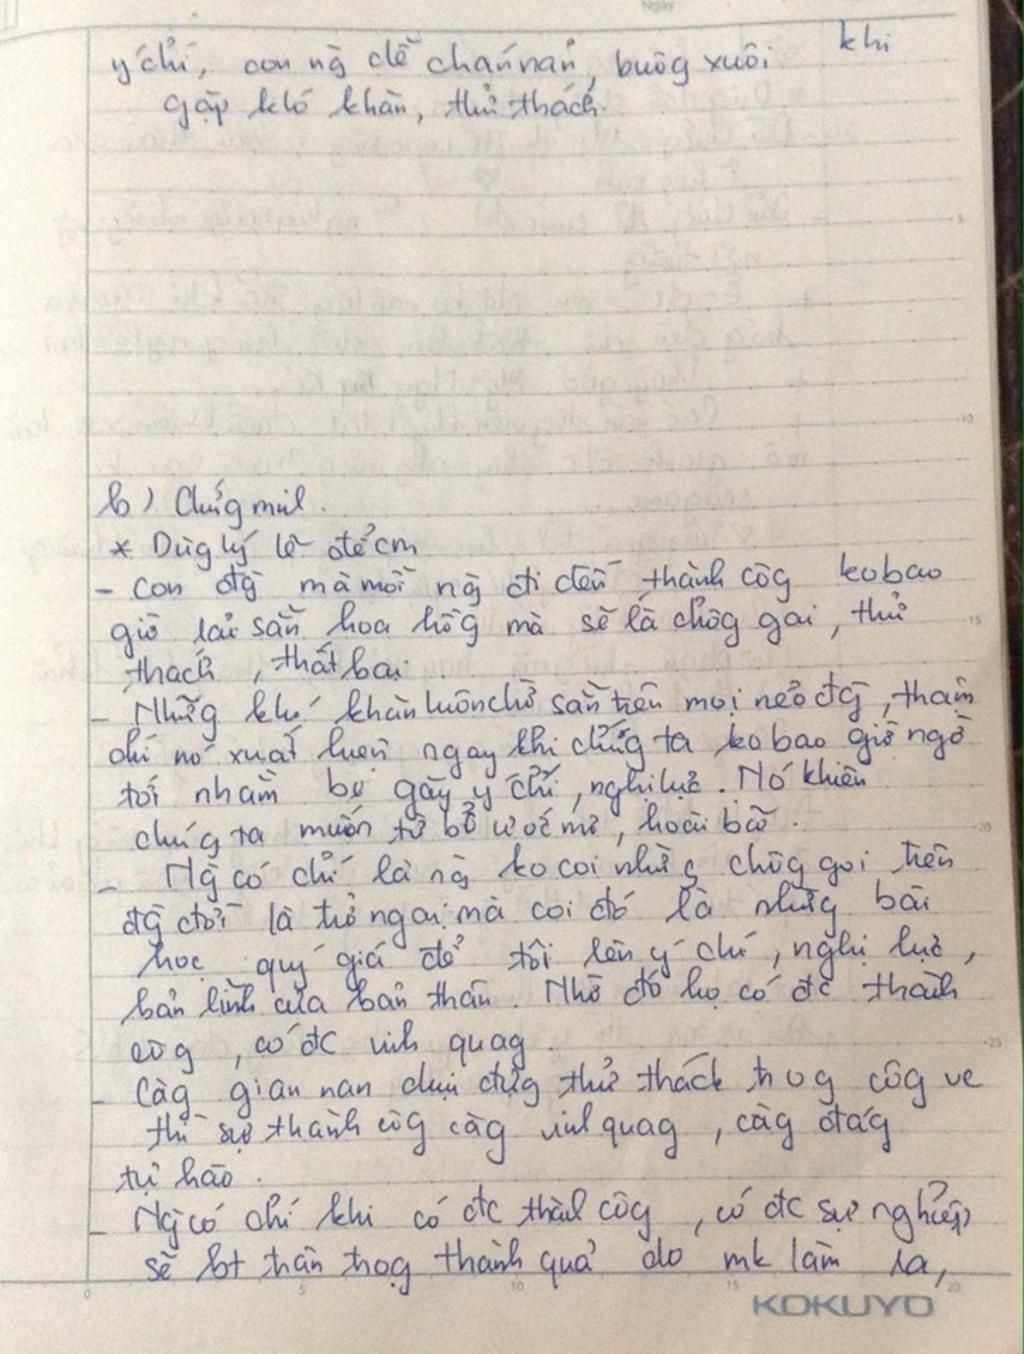 Ngày
ý chí, con ng̀ dễ chán nản, buôg xuôi khi
gặp khó khăn, thử thách.
b) Chứg minh.
* Dùg lý lẽ để cm
- Con đg̀ mà mỗi ng̀ đi đến thành côg ko bao
giờ lải sẵn hoa hồg mà sẽ là chôg gai, thử
thách, thất bại.
- Nhữg khó khăn luôn chờ sẵn trên mọi nẻo đg̀, thậm
chí nó xuất hiện ngay khi chúg ta ko bao giờ ngờ
tới nhằm bẻ gãy ý chí, nghị lực. Nó khiến
chúg ta muốn từ bỏ ước mơ, hoài bão.
- Ng̀ có chí là ng̀ ko coi nhữg chôg gai trên
đg̀ đời là trở ngại mà coi đó là nhữg bài
học quý giá để tôi lên ý chí, nghị lực,
bản lĩnh của bản thân. Nhờ đó họ có đc thành
côg, có đc vinh quag.
- Càg gian nan chịu đựg thử thách trog côg vc
thì sự thành côg càg vinh quag, càg đág
tự hào.
- Ng̀ có chí khi có đc thành côg, có đc sự nghiệp
sẽ bt trân trọg thành quả do mk làm ra,
KOKUYO